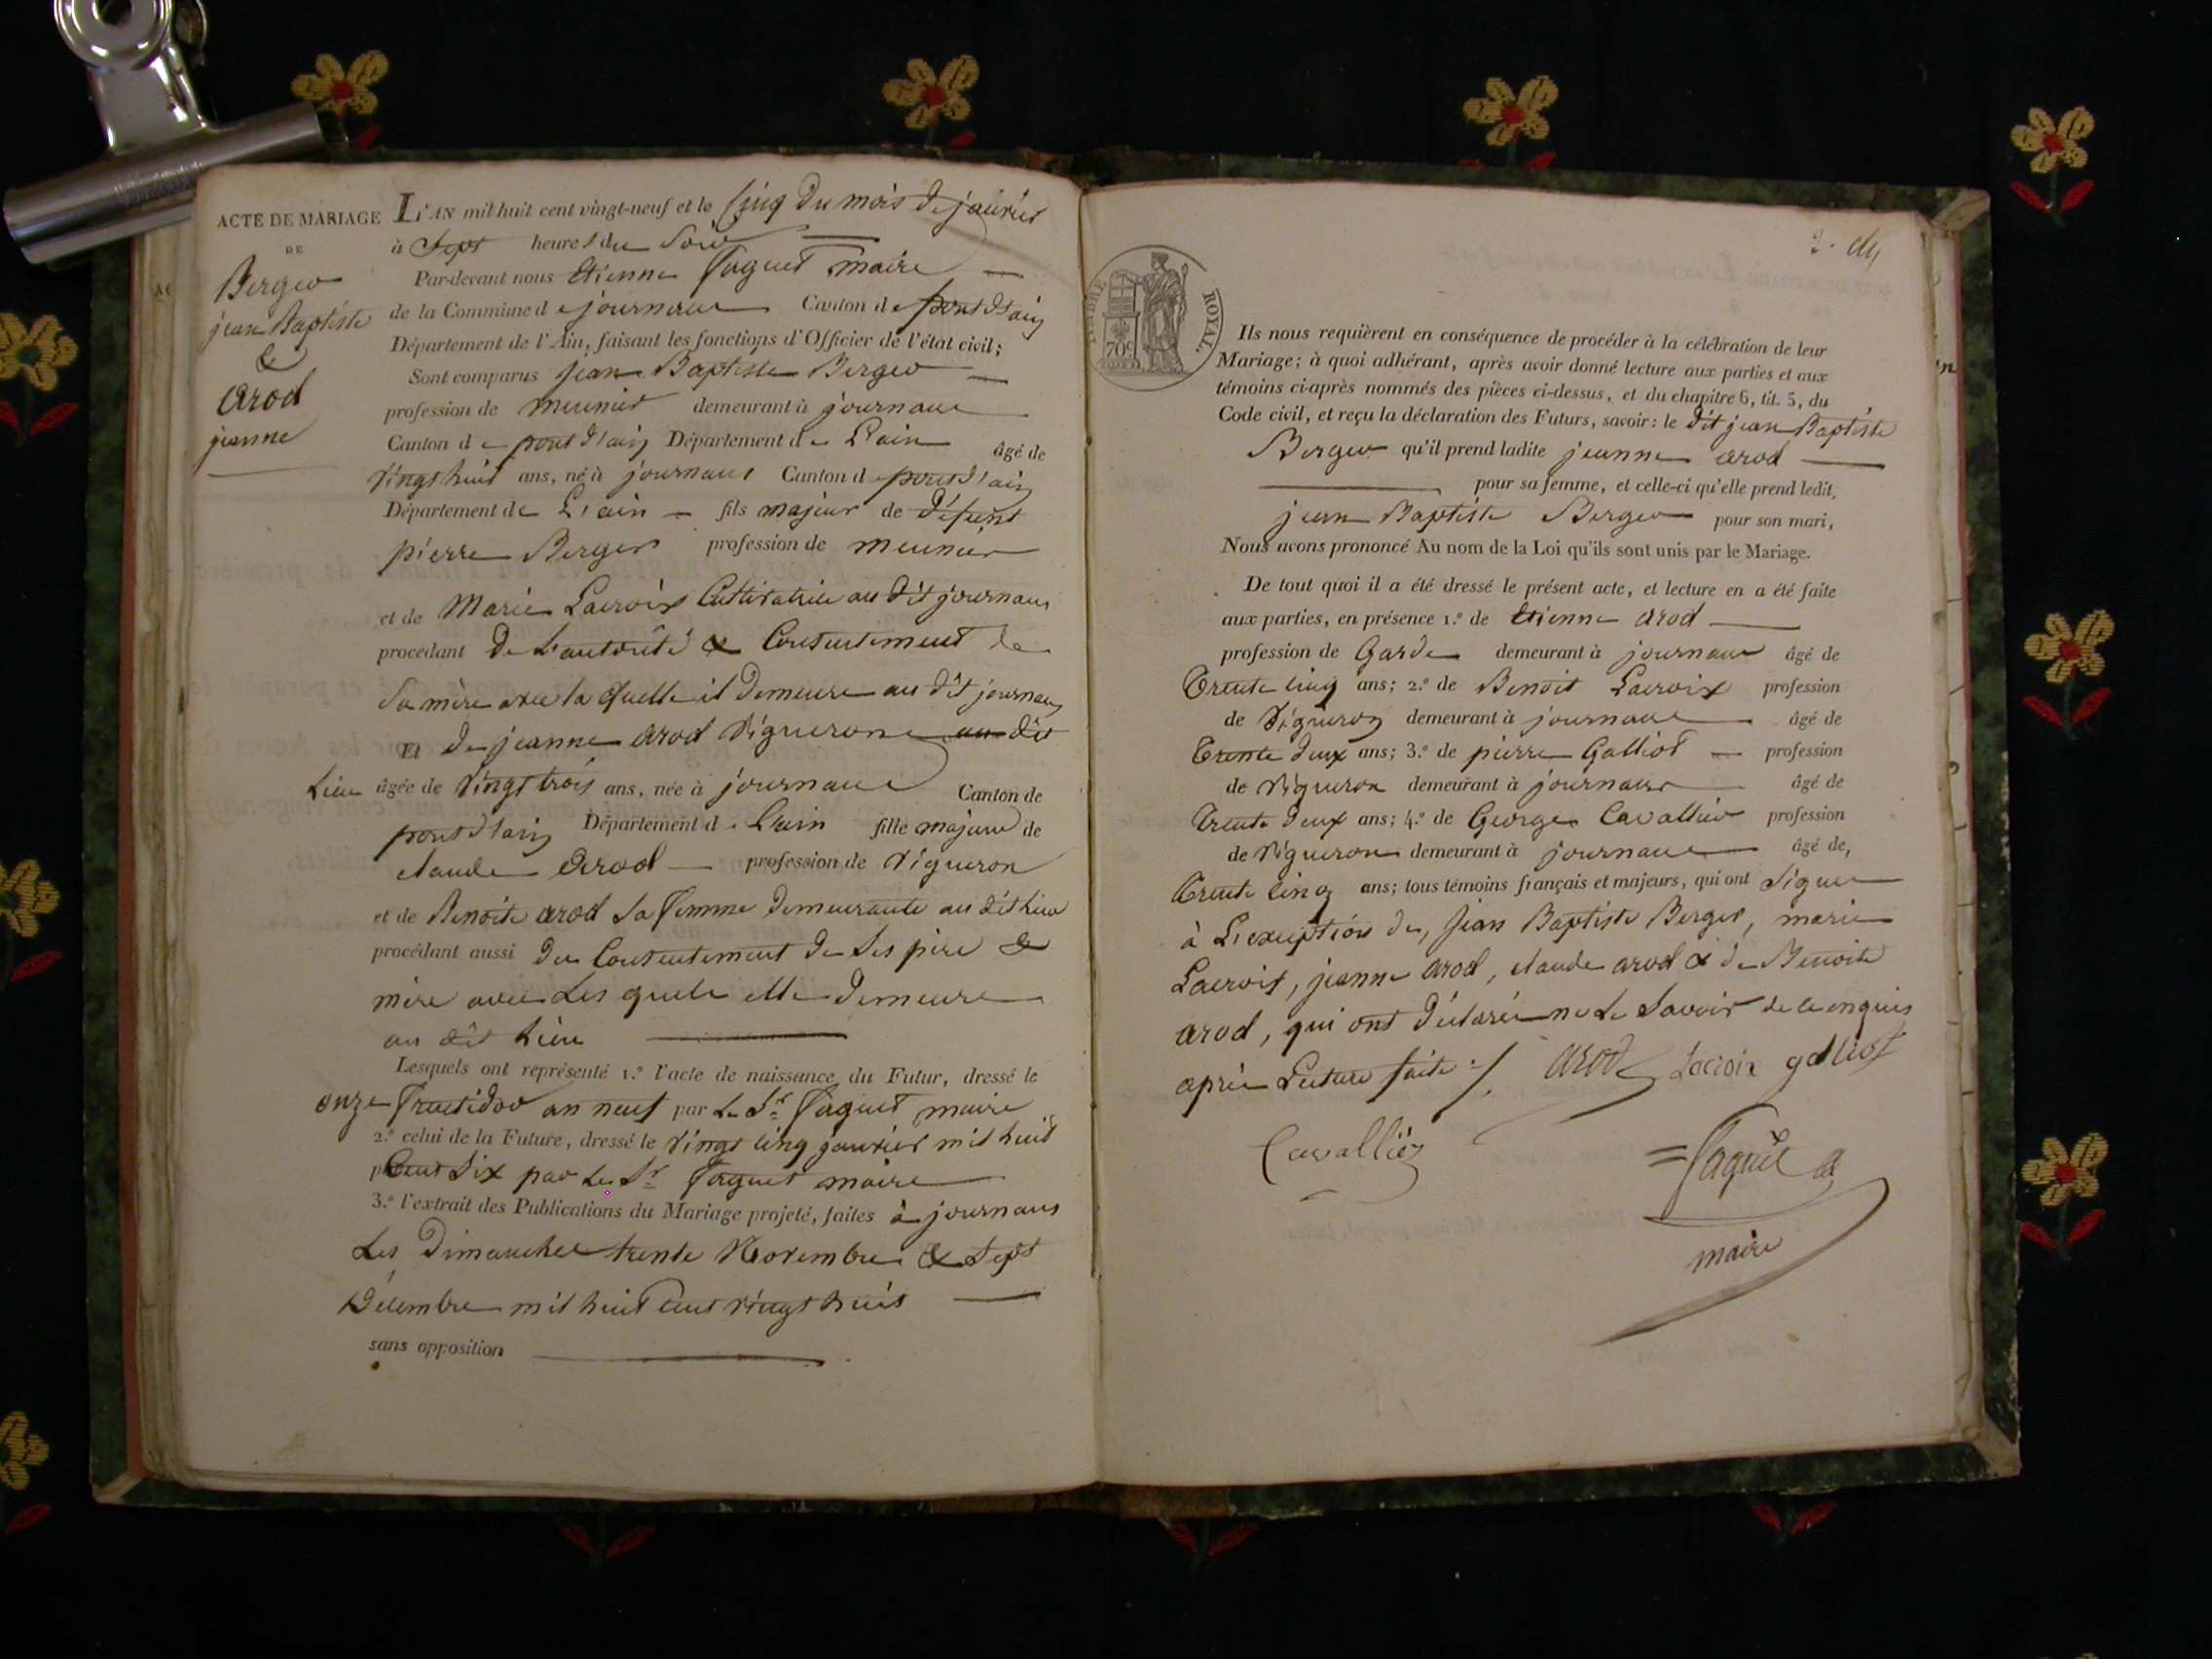 ACTE DE MARIAGE
DE
Berger
jean Baptiste
&
arod
jeanne
L'AN mil huit cent vingt-neuf et le Cinq du mois de janvier
à Sept heures du Soir
Par-devant nous Etienne Faguet maire
de la Commune de journans Canton de pont d'ain
Département de l'Ain, faisant les fonctions d'Officier de l'état civil;
Sont comparus jean Baptiste Berger
profession de meunier demeurant à journans
Canton de pont d'ain Département de L'ain âgé de
Vingt huit ans, né à journans Canton de pont d'ain
Département de L'ain fils majeur de défunt
pierre Berger profession de meunier
et de Marie Lacroix Cultivatrice au dit journans
procédant De L'autorité & Consentement de
Sa mère avec la quelle il Demeure au dit journans
Et de jeanne arod Vigneronne au dit
Lieu âgée de Vingt trois ans, née à journans Canton de
pont d'ain Département de L'ain fille majeure de
claude arod profession de Vigneron
et de Benoite arod Sa femme Demeurante au dit Lieu
procédant aussi du Consentement de Ses père &
mère avec Les quels elle Demeure
au dit Lieu
Lesquels ont représenté 1.º l'acte de naissance du Futur, dressé le
onze fructidor an neuf par Le Sr Faguet maire
2.º celui de la Future, dressé le Vingt cinq janvier mil huit
Cent Six par Le Sr Faguet maire
3.º l'extrait des Publications du Mariage projeté, faites à journans
Les Dimanches trente Novembre & Sept
Décembre mil huit Cent Vingt huit
sans opposition
TIMBRE ROYAL.
70c
Ils nous requièrent en conséquence de procéder à la célébration de leur
Mariage; à quoi adhérant, après avoir donné lecture aux parties et aux
témoins ci-après nommés des pièces ci-dessus, et du chapitre 6, tit. 5, du
Code civil, et reçu la déclaration des Futurs, savoir: le dit jean Baptiste
Berger qu'il prend ladite jeanne arod
pour sa femme, et celle-ci qu'elle prend ledit,
jean Baptiste Berger pour son mari,
Nous avons prononcé Au nom de la Loi qu'ils sont unis par le Mariage.
De tout quoi il a été dressé le présent acte, et lecture en a été faite
aux parties, en présence 1.º de Etienne arod
profession de Garde demeurant à journans âgé de
Trente cinq ans; 2.º de Benoit Lacroix profession
de Vigneron demeurant à journans âgé de
Trente deux ans; 3.º de pierre Galliot profession
de Vigneron demeurant à journans âgé de
Trente deux ans; 4.º de George Cavallier profession
de Vigneron demeurant à journans âgé de,
Trente cinq ans; tous témoins français et majeurs, qui ont Signer
à L'exception de, Jean Baptiste Berger, marie
Lacroix, jeanne arod, claude arod & de Benoite
arod, qui ont déclarée ne Le Savoir de ce enquis
après Lecture faite ./. arod Lacroix galliot
Cavallier
Faguet
maire